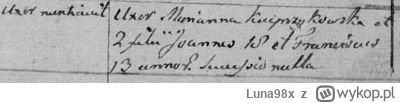 Uxor Marianna Kacprzykowska et
2 filii Joannes 18 et Franciscus
13 annor. Successio nulla
Luna98x z wykop.pl